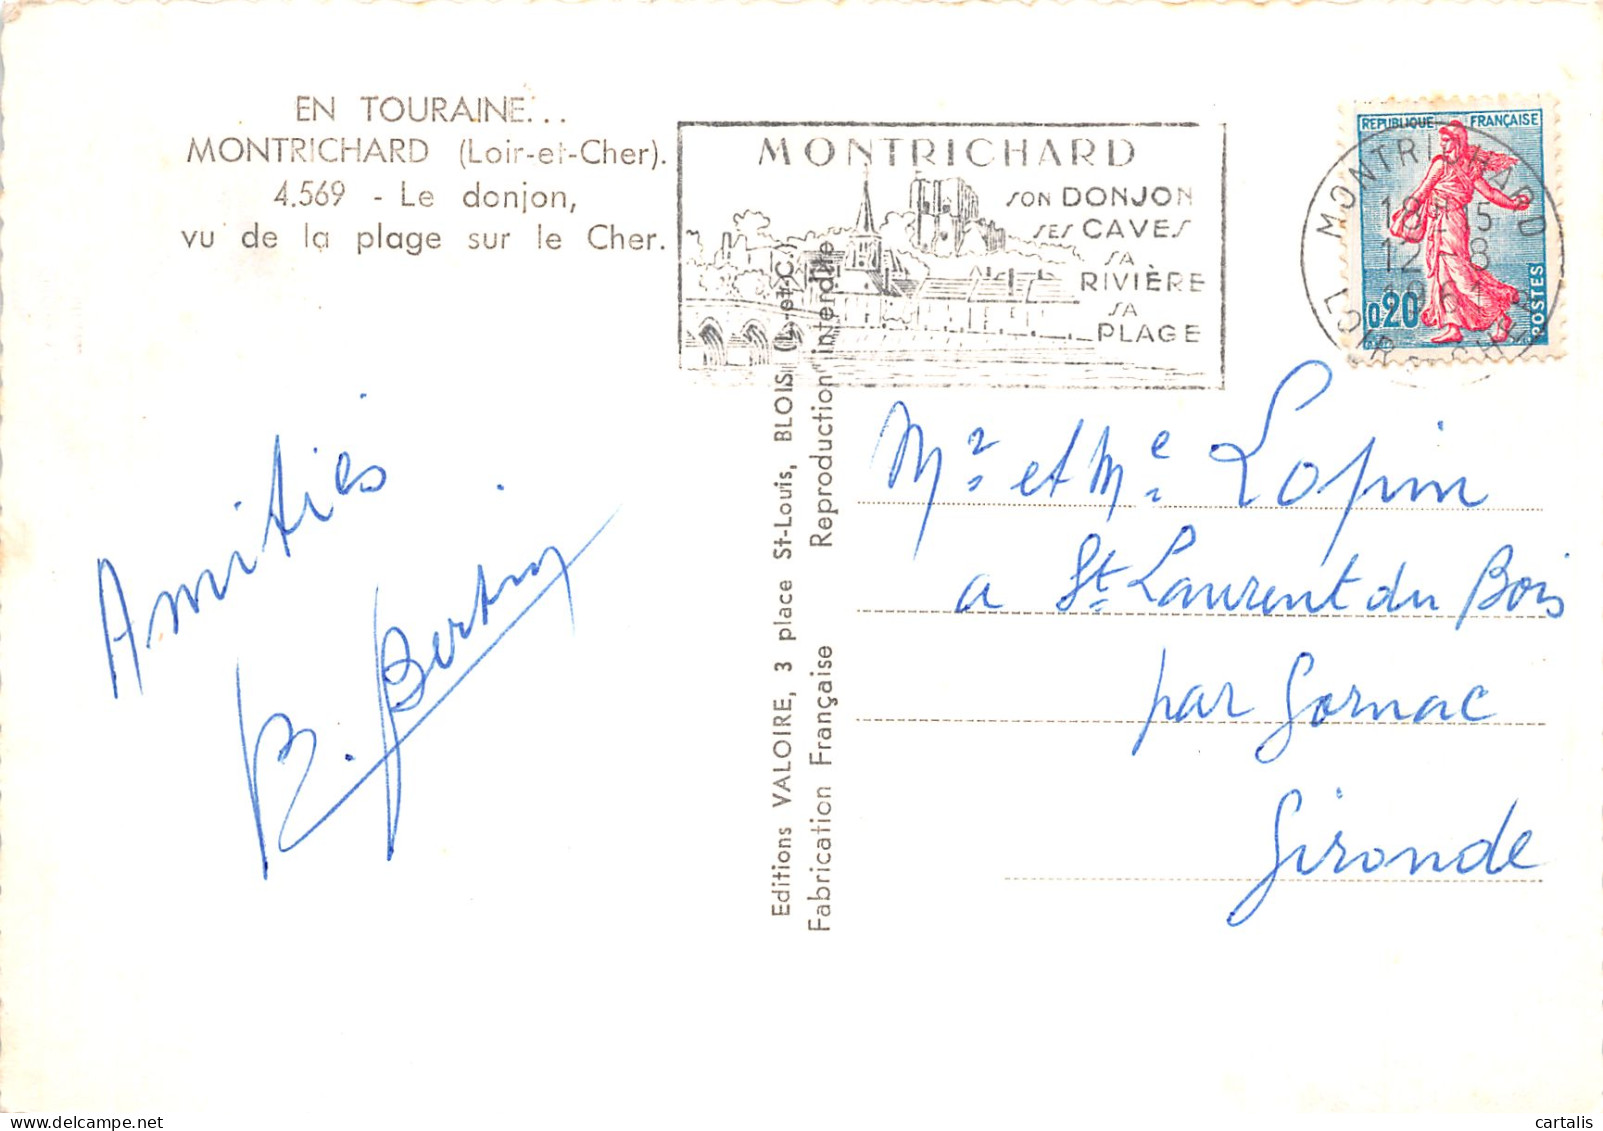 EN TOURAINE...
MONTRICHARD (Loir-et-Cher).
4.569 - Le donjon,
vu de la plage sur le Cher.
MONTRICHARD
SON DONJON
SES CAVES
SA
RIVIÈRE
SA
PLAGE
REPUBLIQUE FRANÇAISE
0,20
POSTES
MONTRICHARD
18H15
12-8
1961
LOIR-ET-CHER
Amitiés
Editions VALOIRE, 3 place St-Louis, BLOIS (L.-et-C.)
Fabrication Française Reproduction interdite
Mr et Me Lopin
a St Laurent du Bois
par Gornac
Gironde
cartalis